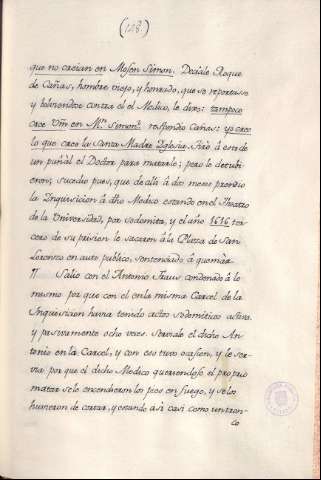 (128.)
que no creian en Mosen Simon. Deciale Roque
de Cañas, hombre viejo, y honrado, que se reportase
y bolviendose contra el el Medico, le dixo: tampoco
cree Vm en Mn Simon? respondio Cañas: yo creo
lo que cree la Santa Madre Yglesia. Tiró á esto de
un puñal el Doctor para matarle; pero le detubi
eron; sucedio pues, que de alli á dos meses prendio
la Ynquisicion á dho Medico estando en el Theatro
de la Universidad, por sodomita, y el año 1616 ter
cero de su prision le sacaron á la Plaza de San
Lorenzo en auto publico, sentenciado á quemar
Salio con el Antonio Traus condenado á lo
mismo por que con el en la misma Carcel de la
Ynquisicion havia tenido actos sodomiticos active
y passivamente ocho veces. Serviale el dicho An
tonio en la Carcel, y con eso tuvo ocasion, y le ser
via por que el dicho Medico queriendose el proprio
matar se le encendieron los pies en fuego, y se los
huvieron de cortar, y estando asi casi como un tron-
co